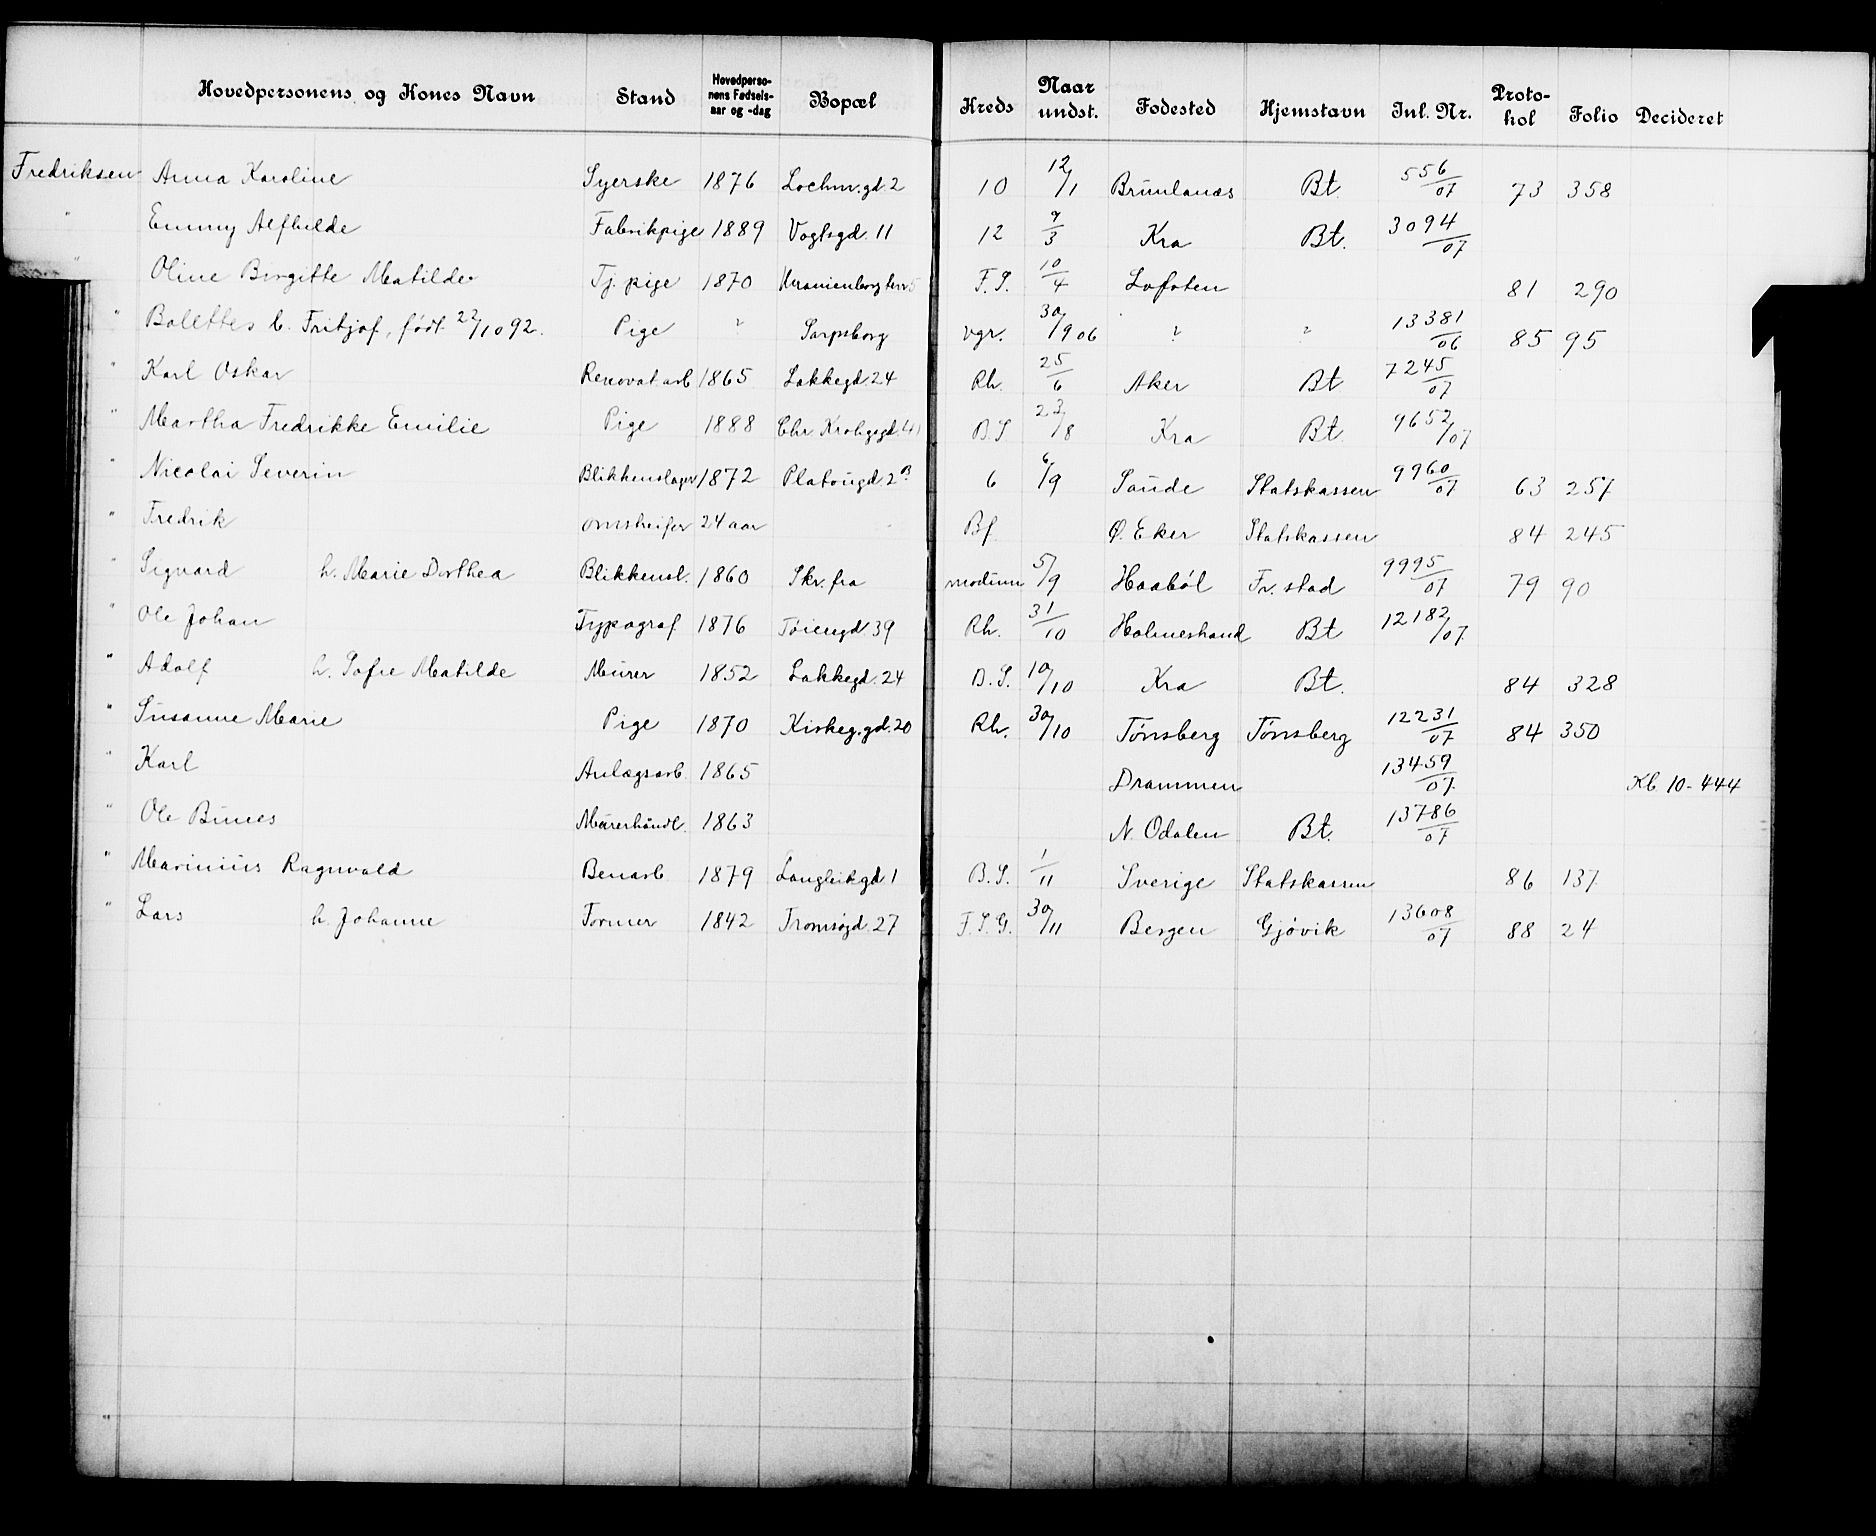 Hovedpersonens og Kones Navn Stand Hovedperso-nens Fødsels-aar og -dag Bopæl Kreds Naar undst. Fødested Hjemstavn Jnl. Nr. Proto-kol Folio Decideret
Fredriksen Anna Karoline Syerske 1876 Lochm.gd. 2 10 12/1 Brunlanæs Bt. 556/07 73 358
" Emmy Alfhilde Fabrikpige 1889 Vogtsgd. 11 12 9/3 Kra Bt. 3094/07
" Oline Birgitte Matilde Tj. pige 1870 Uranienborg terr 5 F.S. 10/4 Lofoten 81 290
" Bolettes b. Fritjof, født 22/10 92. Pige ? Sarpsborg vgr. 30/9 06 ? " 13381/06 85 95
" Karl Oskar Renovat.arb 1865 Lakkegd. 24 Rh. 25/6 Aker Bt 7245/07
" Martha Fredrikke Emilie Pige 1888 Chr Krohgsgd. 41 B.S 23/8 Kra Bt. 9652/07
" Nicolai Severin Blikkenslager 1872 Platougd 2B 6 6/9 Saude Statskassen 9960/07 63 257
" Fredrik omstreifer 24 aar Bf Ø. Eker Statskassen 84 245
" Sigvard h. Marie Dorthea Blikkensl. 1860 Skr. fra modium 5/9 Haabøl Fr. stad 9995/07 79 90
" Ole Johan Typograf 1876 Tøiengd 39 Rh. 31/10 Holmestrand Bt 12182/07
" Adolf h. Sofie Matilde Murer 1852 Lakkegd. 24 B.S. 10/10 Kra Bt. 84 328
" Susanne Marie Pige 1870 Kirkeg.gd. 20 Rh. 30/10 Tønsberg Tønsberg 12231/07 84 350
" Karl Anlægsarb. 1865 Drammen 13459/07 Kb 10-444
" Ole Murerhåndl. 1863 N. Odalen Bt. 13786/07
" Marinius Ragnvald Benarb 1879 Langleikgd 1 B.S. 1/11 Sverige Statskassen 86 137
" Lars h. Johanne Former 1842 Tromsøgd. 27 F.S.G. 30/11 Bergen Gjøvik 13608/07 88 24